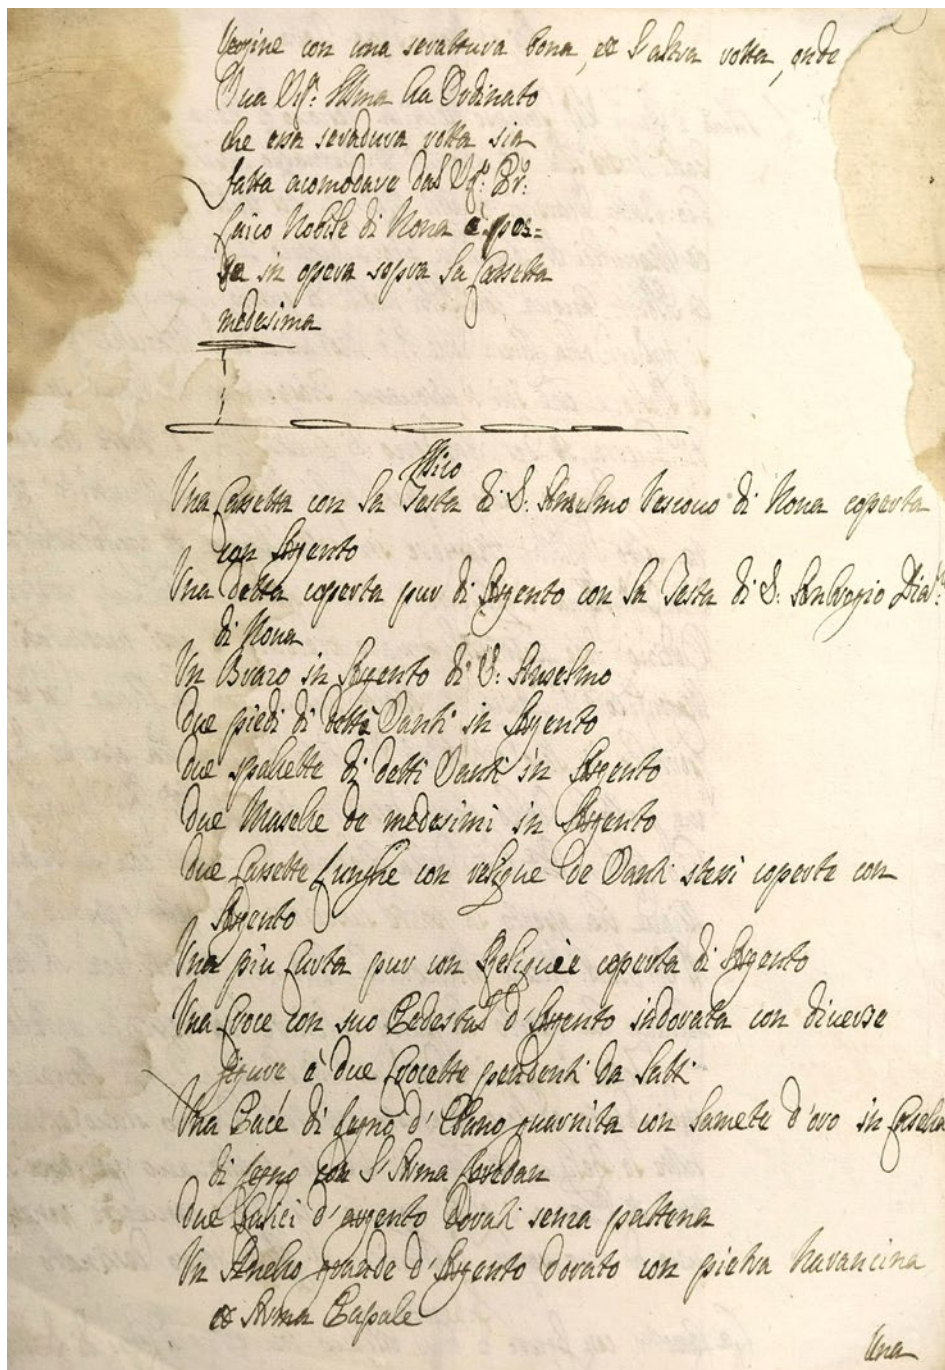 Vergine con una serattura bona, et l'altra rotta, onde
Sua Sig.ª Illma ha Ordinato
che essa seradura rotta sia
fatta acomodare dal Sig.r
Nobile di Nona è pos=
ta in opera sopra la Cassetta
medesima
Una Cassetta con la Testa di S. Anselmo Vescovo di Nona coperta
con Argento
Una detta coperta pur di Argento con la Testa di S. Ambrogio Diac.º
di Nona
Un Brazo in Argento di S. Anselmo
due piedi di detti Santi in Argento
due spallette di detti Santi in Argento
due Maselle de medesimi in Argento
due Cassette Lunghe con relique de Santi stessi coperte con
Argento
Una più Curta pur con Reliquie coperta di Argento
Una Croce con suo Pedestal d'Argento indorata con diverse
figure è due Crocette pendenti da latti
Una Pace di legno d'Ebano guarnita con lamete d'oro in Casella
di legno con l'Arma
due Calici d'argento dorati senza pattena
Un Anello grande d'Argento dorato con pietra Narancina
et Arma Papale
Una